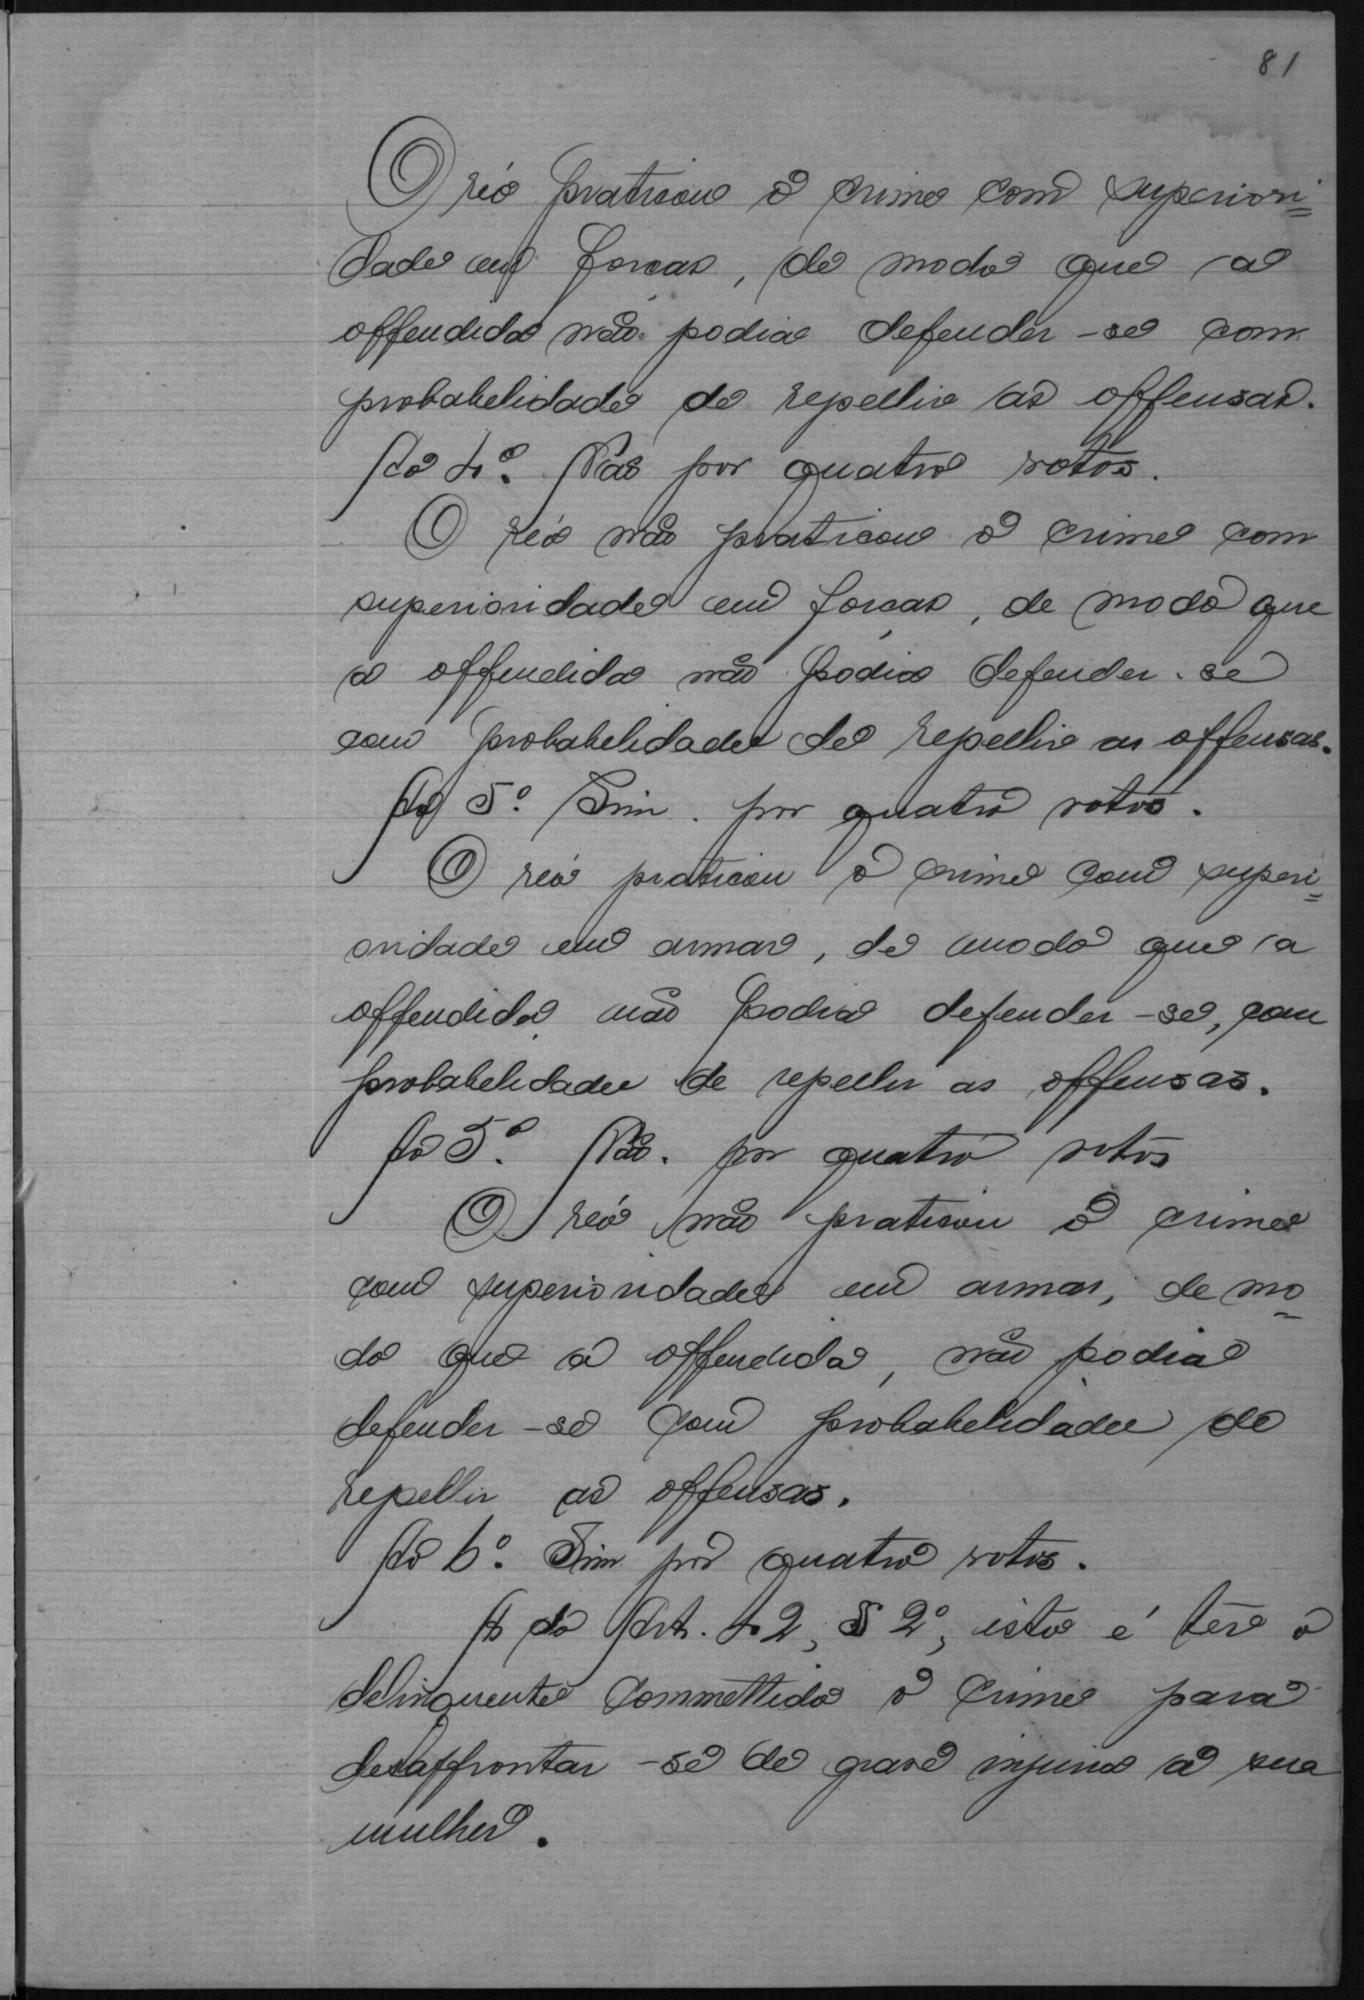 81
O réo praticou o crime com superiori=
dade em forças, de modo que a
offendida não podia defender-se com
probabelidade de repellir as offensas.
Ao 4º. Não por quatro votos.
O réo não praticou o crime com
superioridade em forças, de modo que
a offendida não podia defender-se
com probabelidade de repellir as offensas.
Ao 5º. Sim. por quatro votos.
O réo praticou o crime com superi=
oridade em armas, de modo que a
offendida não podia defender-se, com
probabelidade de repellir as offensas.
Ao 5º. Não. por quatro votos
O réo não praticou o crime
com superioridade em armas, de mo=
do que a offendida, não podia
defender-se com probabelidade de
repellir as offensas.
Ao 6º. Sim por quatro votos.
A do Art. 42, § 2º, isto é ter o
delinquente commettido o crime para
desaffrontar-se de grave injuria a sua
mulher.